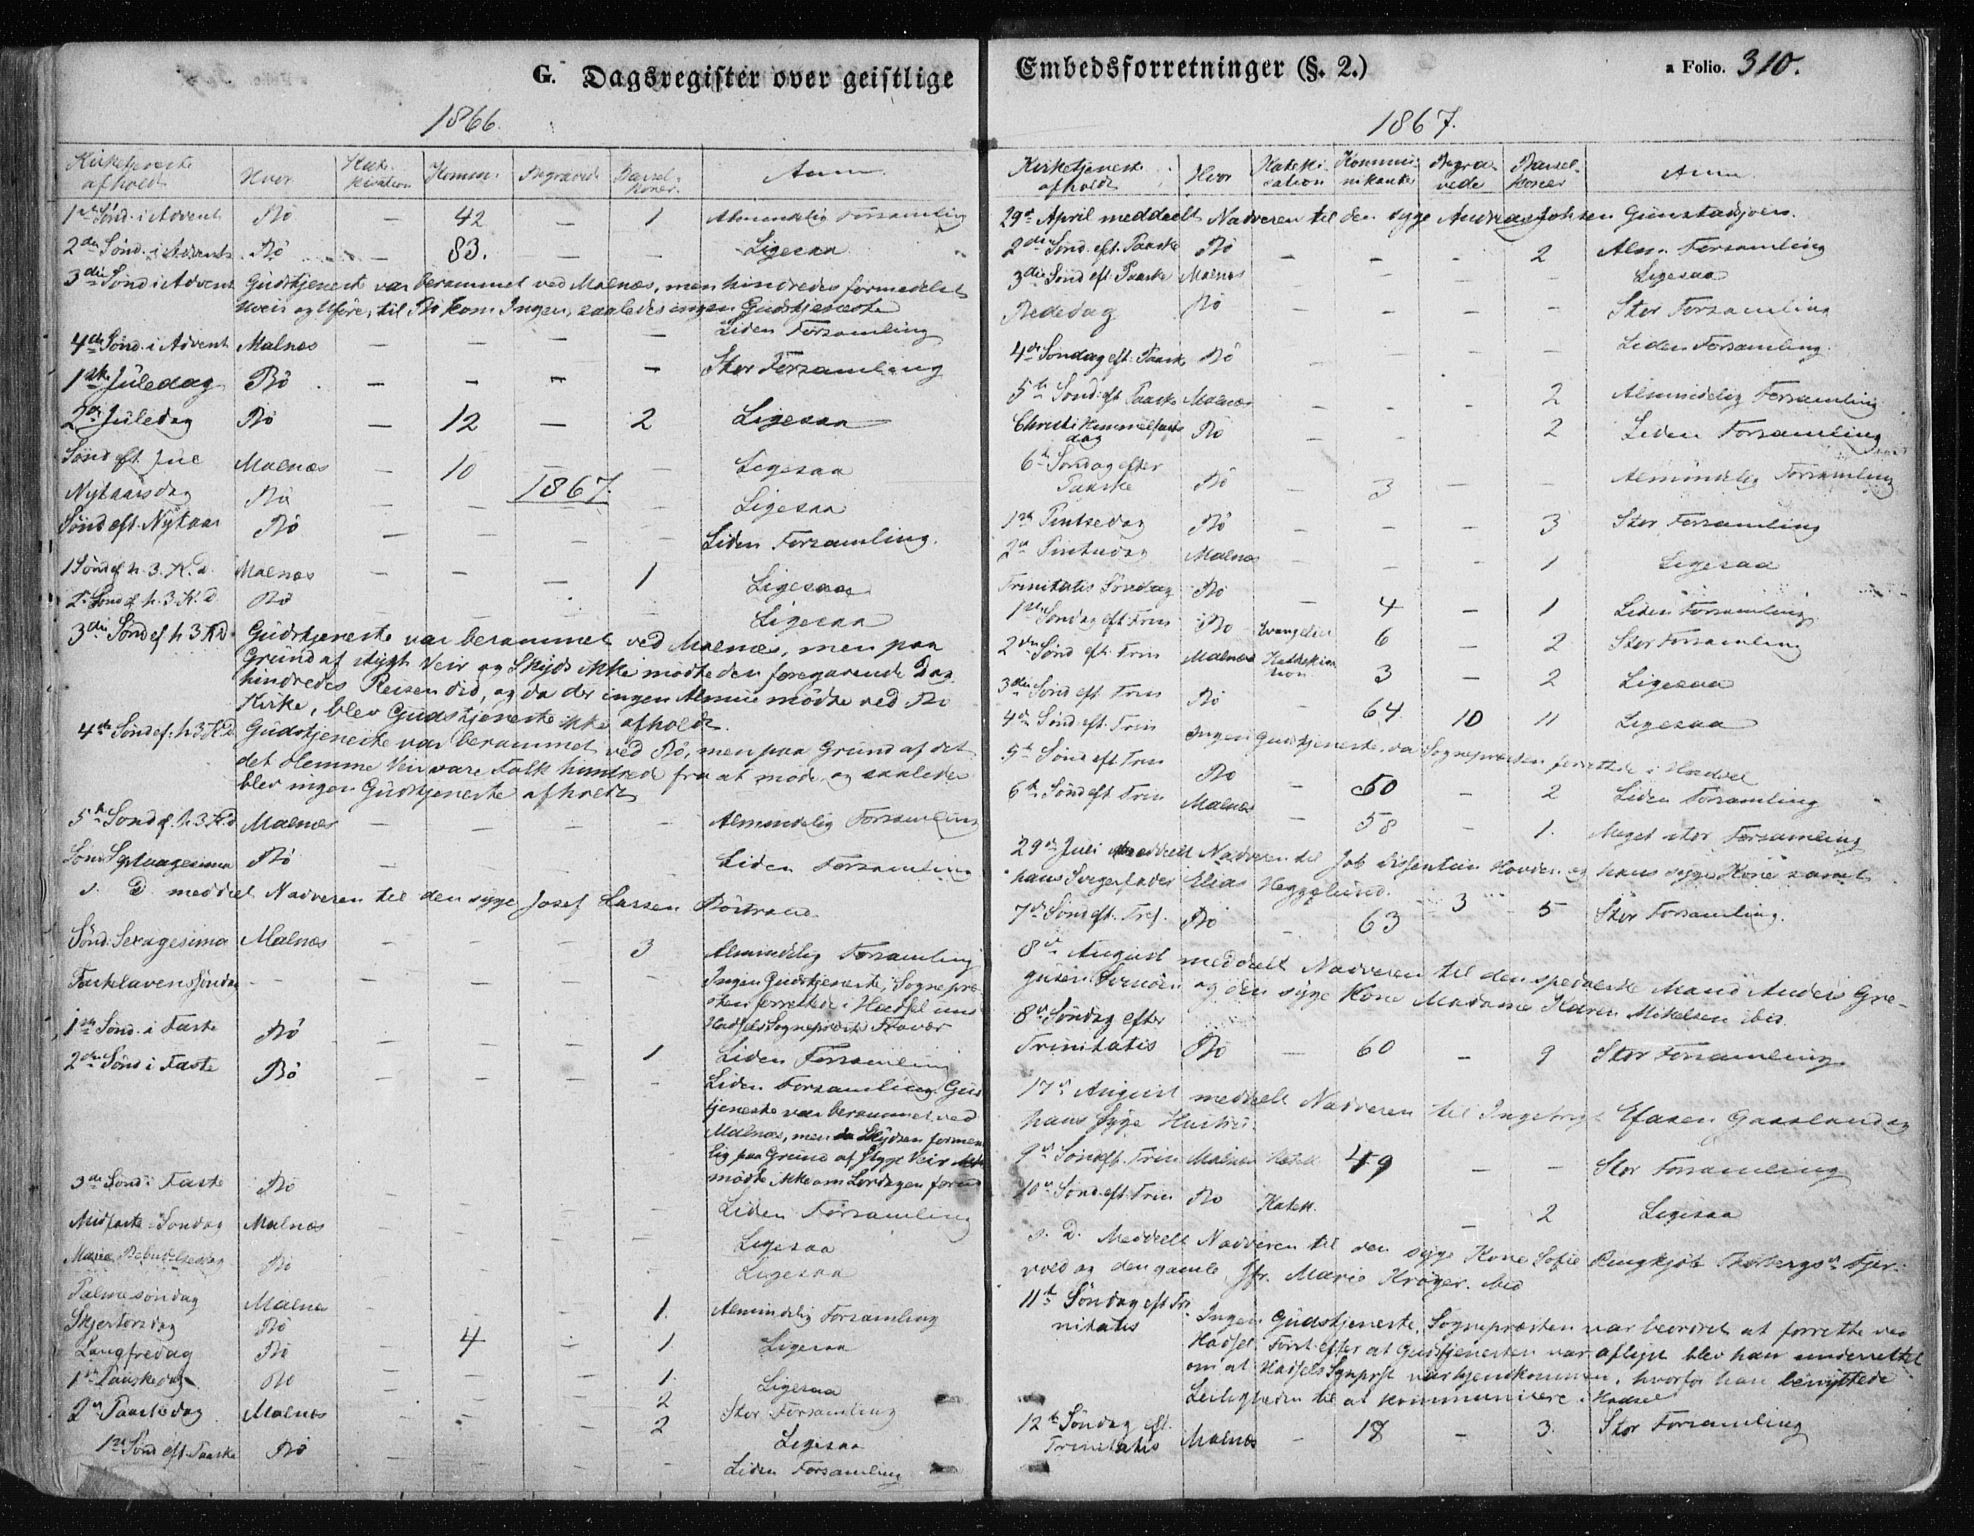 G. Dagsregister over geistlige
1866.
Kirketjeneste afholdt Hvor Kate-kisation Komm. Begravede Barsel-koner. Anm.
1ste Sønd. i Advent Bø — 42 — 1 Almindelig Forsamling
2den Sønd. i Advent Bø — 83. — — Ligesaa
3die Sønd. i Advent Gudstjeneste var berammet ved Malnæs, men hindredes formedelst
Uveir og Uføre, til Bø kom Ingen, saaledes ingen Gudstjeneste
4de Sønd. i Advent Malnæs — — — — Liden Forsamling
1ste Juledag Bø — — — — Stor Forsamling
2den Juledag Bø — 12 — 2 Ligesaa
Sønd. eft. Jul Malnæs — 10 — — Ligesaa
1867.
Nytaarsdag Bø — — — Ligesaa
Sønd eft. Nytaar Bø — — — — Liden Forsamling.
1 Sønd ef. h. 3. K. d. Malnæs — — — 1 Ligesaa
2 Sønd ef. h. 3 K. D. Bø — — — — Ligesaa
3die Sønd ef. h 3 Kd. Gudstjeneste var berammet ved Malnæs, men paa
Grund af stygt Veir og Skyds ikke mødte den foregaaende Dag
hindredes Reisen did, og da der ingen Almue mødte ved Bø
Kirke, blev Gudstjeneste ikke afholdt.
4de Sønd ef. h 3 K D. Gudstjeneste var berammet ved Bø, men paa Grund af det
det slemme Veir vare Folk hindrede fra at møde og saaledes
blev ingen Gudstjeneste afholdt
5te Sønd ef. h 3 K D Malnæs — — — — Almindelig Forsamling
Sønd Septuagesima Bø — — — — Liden Forsamling
s. D. meddelt Nadveren til den syge Josef Larsen Bøstrand.
Sønd: Sexagesima Malnæs — — — 3 Almindelig Forsamling
Fastelavens Søndag — — — — Ingen Gudstjeneste, Sognepræ-
sten forrettede i Hadsel un-
Hadsels Sognepræsts Fravær
1ste Sønd. i Faste Bø — — — 1 Liden Forsamling
2den Sønd i Faste Bø — — — — Liden Forsamling Gus
tjeneste var berammet ved
Malnæs, men da Skydsen
lig paa Grund af Stygt Veir
mødte ikke om Lørdagen
3die Sønd i Faste Bø — — — — Liden Forsamling
Midfaste Søndag Malnæs — — — — Ligesaa
Mariæ Bebudelsesdag Bø — — — — Ligesaa
Palmesøndag Malnæs — — — 1. Almindelig Forsamling
Skjertorsdag Bø — 4 — 1. Ligesaa
Langfredag Bø — — — 1. Ligesaa
1ste Paaskedag Bø — — — 2 Stor Forsamling
2den Paaskedag Malnæs — — — 2 Ligesaa
1ste Sønd. eft. Paaske Bø — — — — Liden Forsamling
Embedsforretninger (§. 2.)
a Folio. 310.
1867.
Kirketjeneste afholdt Hvor Kateki-sation Kommu-nikanter Begra-vede Barsel-koner Anm
29de April meddeelt Nadveren til den syge Andreas Johsen Gunstadsjøen.
2den Sønd. eft. Paaske Bø — — — 2 Alm. Forsamling
3die Sønd eft Paaske Malnæs — — — — Ligesaa
Bededag Bø — — — — Stor Forsamling
4de Søndag eft. Paaske Bø — — — — Liden Forsamling.
5te Sønd: eft Paaske Malnæs — — — 2 Almindelig Forsamling
Christi Himmelfarts dag Bø — — — 2 Liden Forsamling
6te Søndag efter Paaske Bø — 3 — — Almindelig Forsamling
1ste Pintsedag Bø — — — 3 Stor Forsamling
2den Pintsedag Malnæs — — — 1 Ligesaa
Trinitatis Søndag Bø — 4 — 1 Liden Forsamling
1ste Søndag eft Trin Bø 6 — 2 Stor Forsamling
2den Sønd eft. Trin Malnæs 3 — 2 Ligesaa
3die Sønd eft Trin Bø 64. 10 11 Ligesaa
4de Sønd eft. Trin Ingen Gudstjeneste, da Sognepræsten forrettede i Hadsel
5te Sønd eft Trin Bø — 50 — 2 Liden Forsamling
6te Sønd eft Trin Malnæs — 58 — 1. Meget stor Forsamling
29de Juli meddelt Nadveren til Job Hovden og hans syge Kone samt
hans Svigerfader Elias Hegglund.
7de Sønd eft. Bø — 63 3 5 Stor Forsamling.
8de August meddelt Nadveren til den spedalske Mand Anders Gre-
og den syge Kone Madame Karen Mikelsen ibd.
8de Søndag efter Trinitatis Bø — 60 — 9 Stor Forsamling
17de August meddelt Nadveren til Ingebrigt Efasen Gaasland og
hans syge Hustru
9de Sønd eft. Trin Malnæs Katek. 49 — — Stor Forsamling
10de Sønd. eft. Trin Bø Katek. — 2 Ligesaa
s. D. Meddelt Nadveren til den syge Kone Sofie Ringkjøb
vold og den gamle Jfr. Marie Krøger.
11te Søndag eft Tri-nitatis Ingen Gudstjeneste, Sognepræsten var beordret at forrette ved
Hadsel. Først efter at Gudstjenesten var aflyst blev han underrettet
om at Hadsels Sgnprst var hjemkommen, hvorfor han benyttede
Leiligheden til at kommunicere i Hadsel
12te Søndag eft. Trinitatis Malnæs — 18 — 3. Stor Forsamling